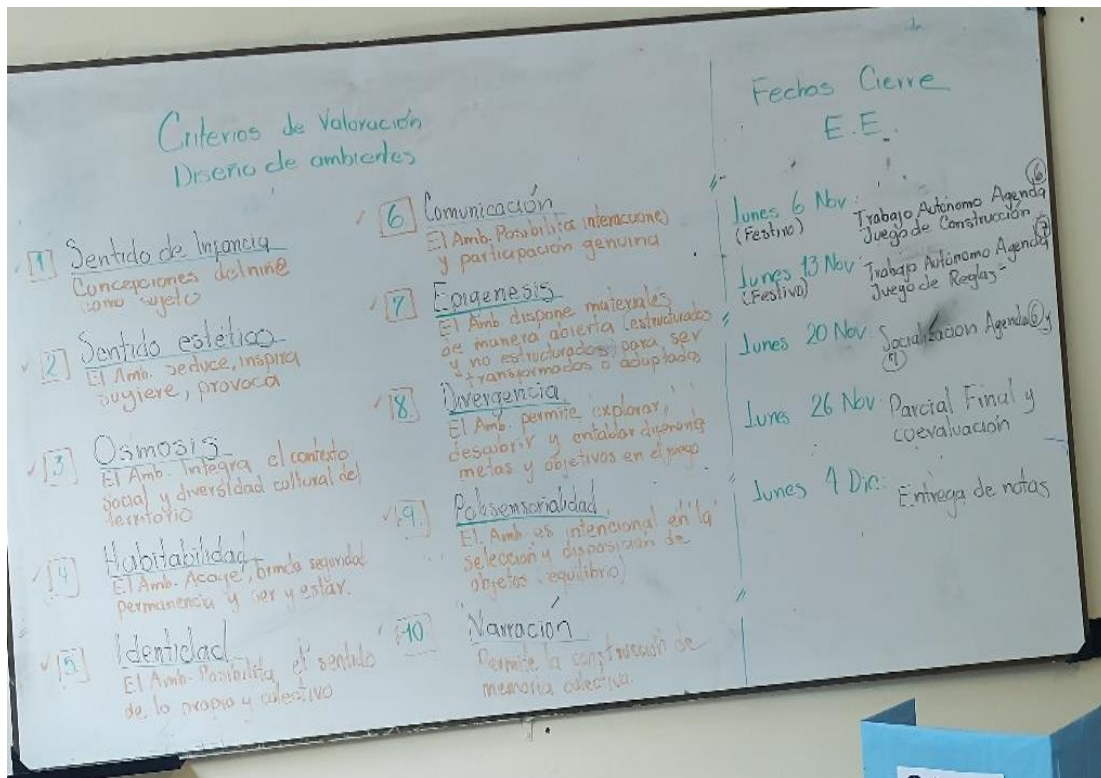 Criterios de Valoración
Diseño de ambientes
1 Sentido de Infancia
Concepciones del niñ@
como sujeto
2 Sentido estético
El Amb. seduce, inspira
sugiere, provoca
3 Osmosis
El Amb. Integra el contexto
social y diversidad cultural del
territorio
4 Habitabilidad
El Amb. Acoge, brinda seguridad
permanencia y ser y estar.
5 Identidad
El Amb. Posibilita el sentido
de lo propio y colectivo
6 Comunicación
El Amb. Posibilita interacciones
y participación genuina
7 Epigenesis
El Amb dispone materiales
de manera abierta (estructurados
y no estructurados) para ser
transformados o adaptados
8 Divergencia
El Amb. permite explorar,
descubrir y entablar diferentes
metas y objetivos en el juego
9. Polisensorialidad
El Amb es intencional en la
selección y disposición de
objetos (equilibrio)
10 Narración
Permite la construcción de
memoria colectiva.
Fechas Cierre
E.E.
lunes 6 Nov: Trabajo Autónomo Agenda 6
(Festivo) Juego de Construcción
lunes 13 Nov Trabajo Autónomo Agenda 7
(Festivo) Juego de Reglas
lunes 20 Nov Socialización Agenda 6 y
7
lunes 26 Nov Parcial Final y
coevaluación
lunes 4 Dic: Entrega de notas